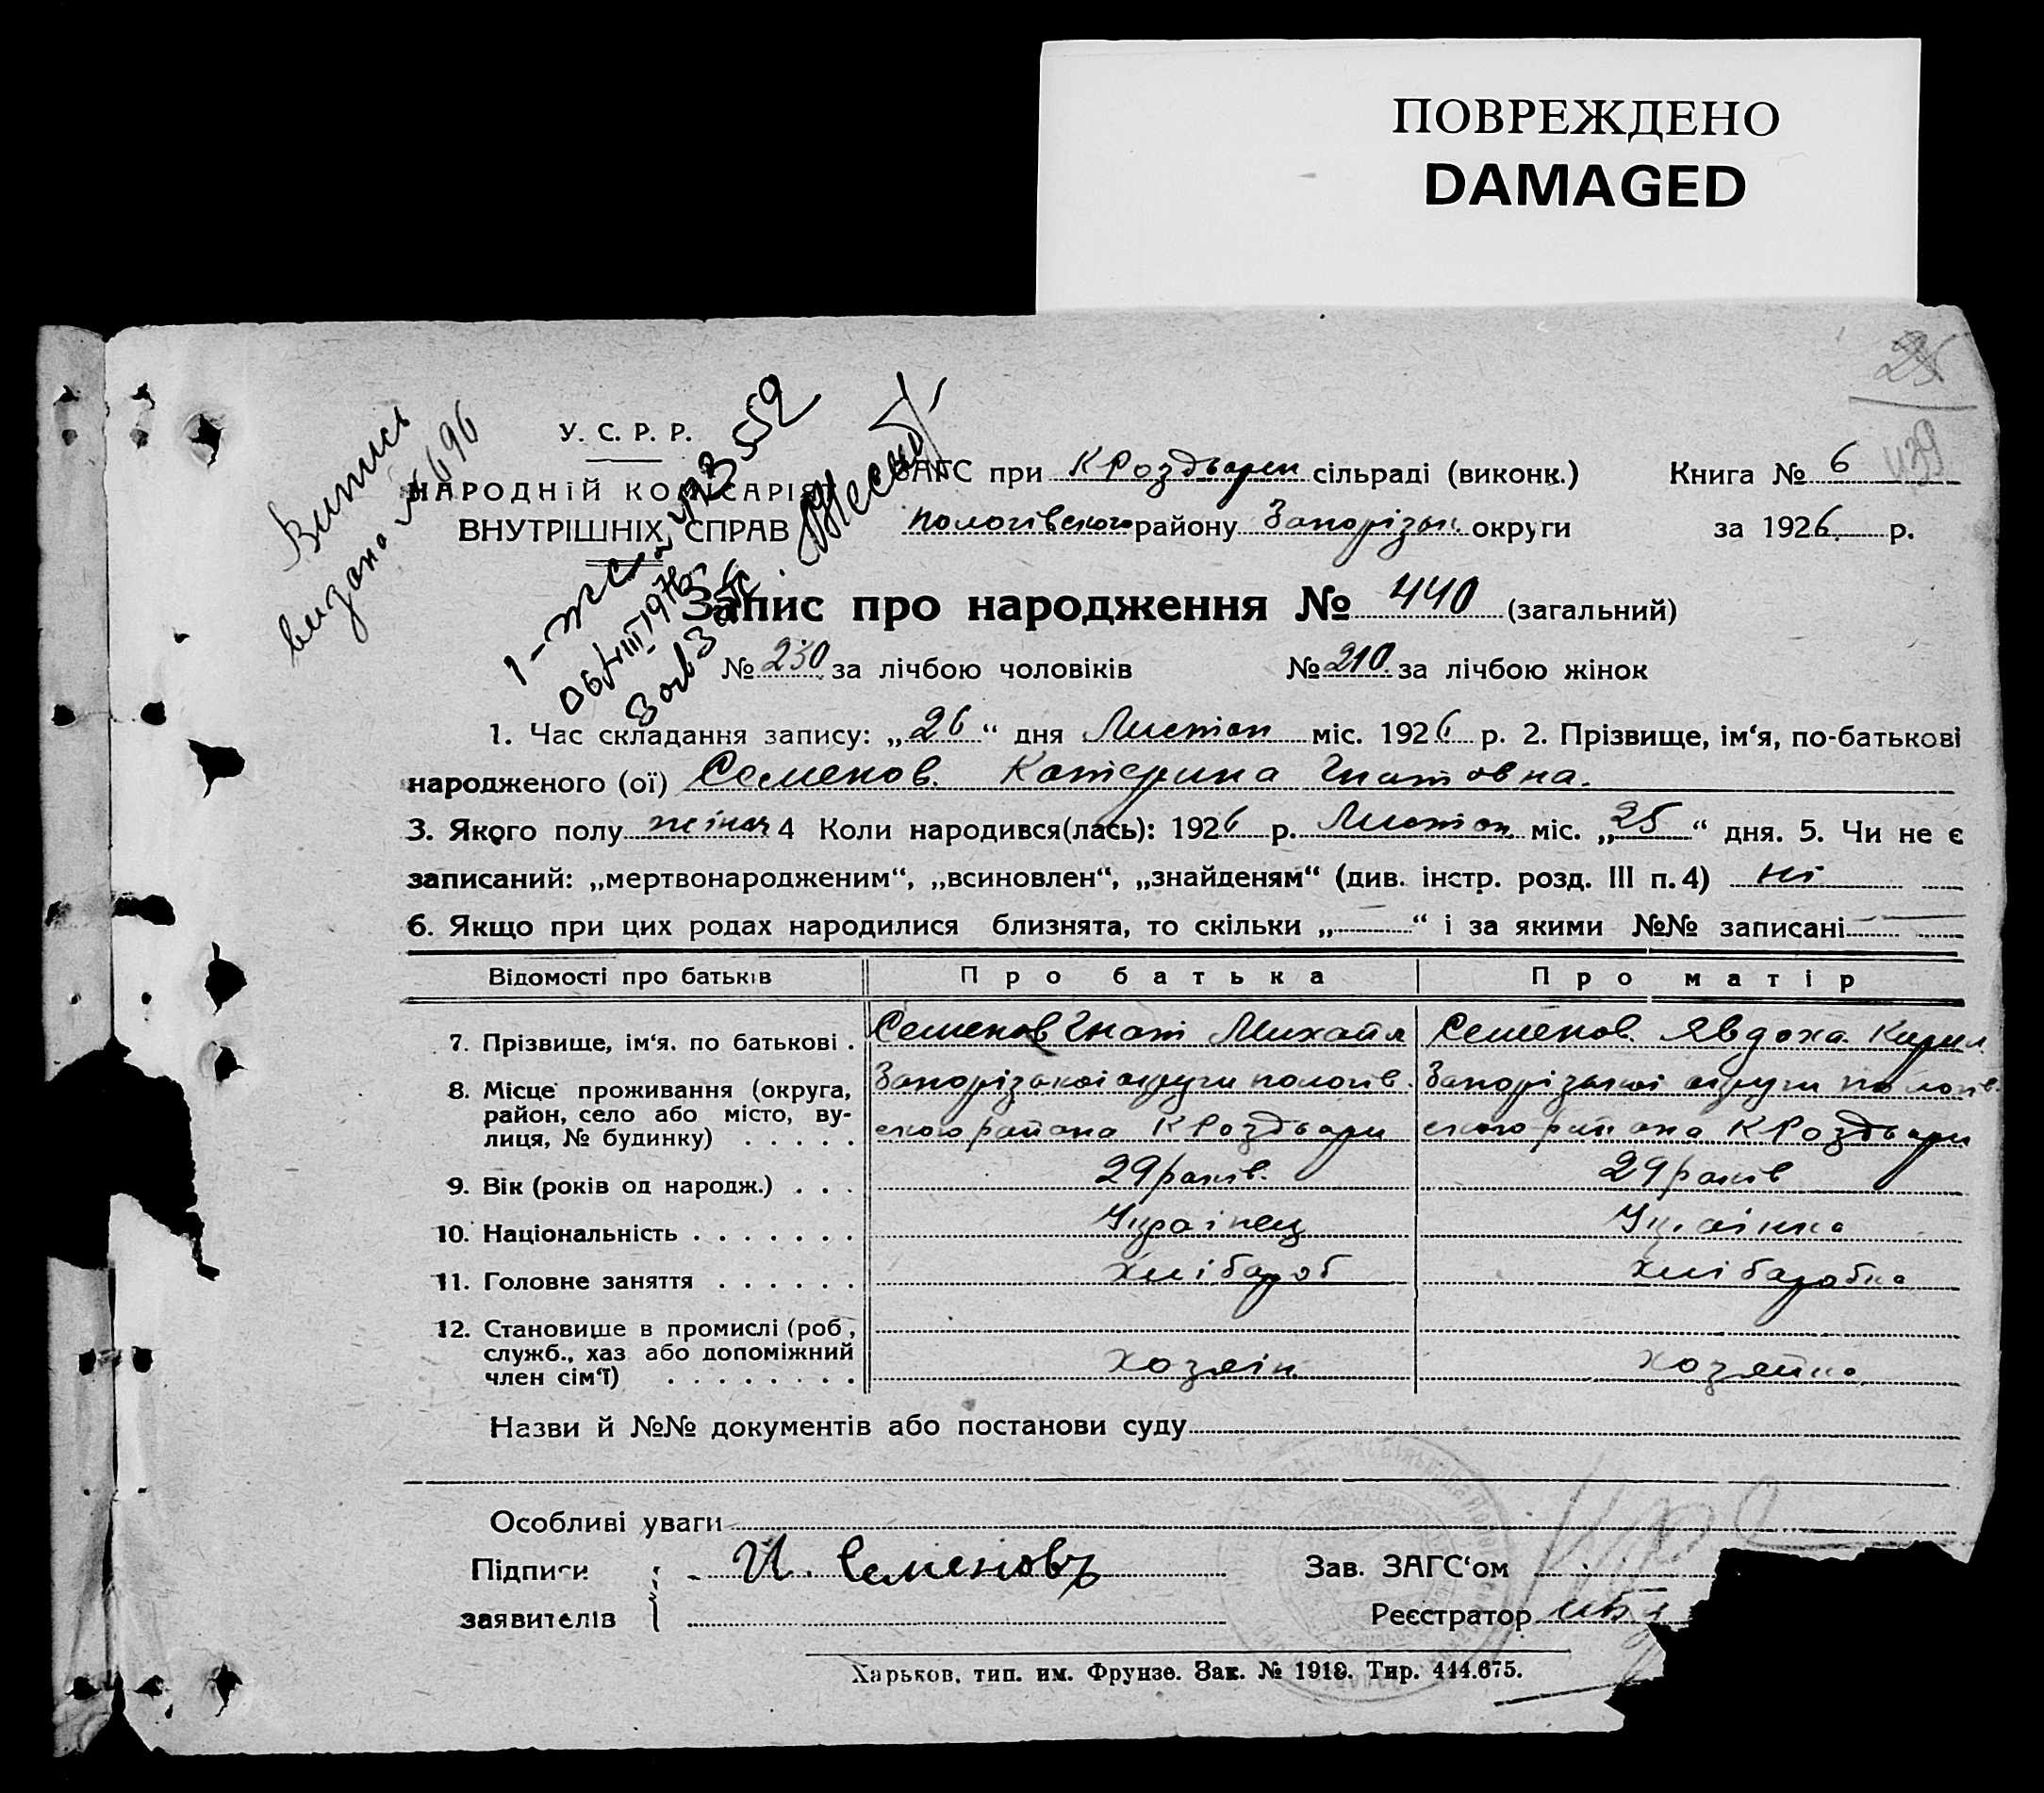 ПОВРЕЖДЕНО
DAMAGED
25
439
Випись
видано № 696
У. С. Р. Р.
НАРОДНІЙ КОМІСАРІЯТ
ВНУТРІШНІХ СПРАВ
ЗАГС при КРоздварси сільраді (виконк.) Книга № 6
пологівского району Запорізьк. округи за 1926 р.
Запис про народження № 440 (загальний)
№ 230 за лічбою чоловіків № 210 за лічбою жінок
1. Час складання запису: „26“ дня Листоп міс. 1926 р. 2. Прізвище, ім‘я, по-батькові
народженого (ої) Семенов. Катерина Гнатовна.
3. Якого полу жіноч 4 Коли народився(лась): 1926 р. Листоп міс. „25“ дня. 5. Чи не є
записаний: „мертвонародженим“, „всиновлен“, „знайденям“ (див. інстр. розд. III п. 4) ні
6. Якщо при цих родах народилися близнята, то скільки „ “ і за якими №№ записані
Відомості про батьків Про батька Про матір
7. Прізвище, ім‘я. по батькові . Семенов Гнат Михайл Семенов. Явдоха Кирил.
8. Місце проживання (округа, Запорізької округи пологів. Запорізької округи пологів.
район, село або місто, вулиця, № будинку) ского района КРоздвари ского района КРоздвари
9. Вік (років од народж.) . . . 29 років. 29 років
10. Національність . . . . . . . Українец Українка
11. Головне заняття . . . . . . хлібароб хлібаробка
12. Становище в промислі (роб.,
служб., хаз або допоміжний
член сім‘ї) . . . . . . . . хозяін. хозяйка.
Назви й №№ документів або постанови суду
Особливі уваги
Підписи И. Семеновъ Зав. ЗАГС‘ом
заявителів Реєстратор
Харьков, тип. им. Фрунзе. Зак. № 1918. Тир. 444.675.